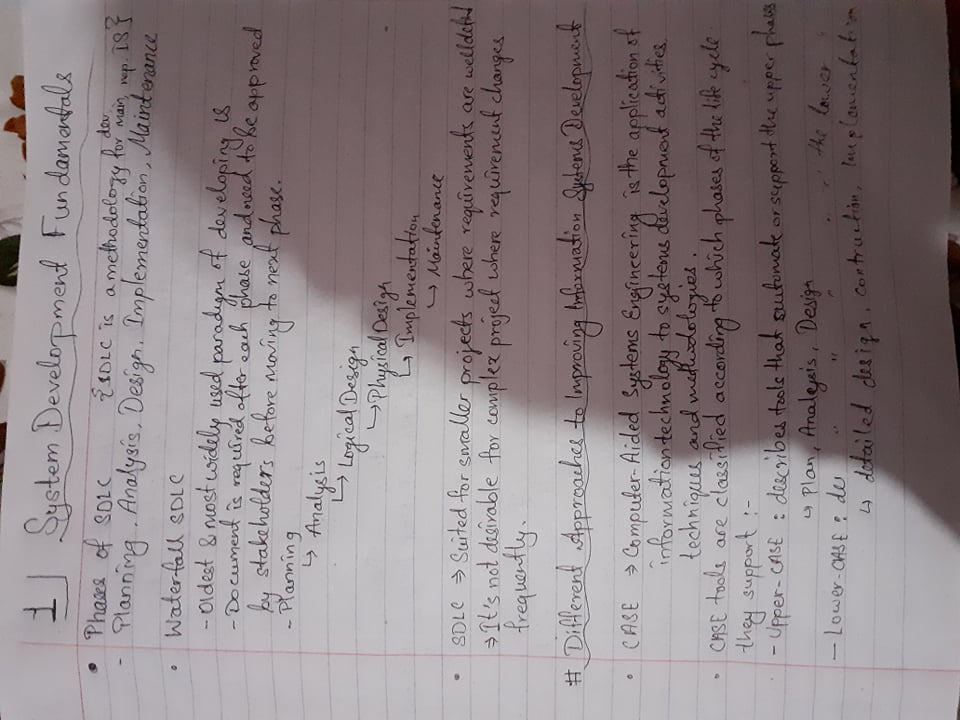 1 System Development Fundamentals
• Phases of SDLC {SDLC is a methodology for dev, main, rep. IS}
- Planning, Analysis, Design, Implementation, Maintenance
• Waterfall SDLC
- Oldest & most widely used paradigm of developing IS
- Document is required after each phase and need to be approved
by stakeholders before moving to next phase.
- Planning
↳ Analysis
↳ Logical Design
↳ Physical Design
↳ Implementation
↳ Maintenance
• SDLC → Suited for smaller projects where requirements are well
→ It's not desirable for complex project where requirement changes
frequently.
# Different Approaches to Improving Information Systems Development
• CASE → Computer-Aided Systems Engineering is the application of
information technology to systems development activities,
techniques and methodologies.
• CASE tools are classified according to which phases of the life cycle
they support :-
- Upper-CASE : describes tools that automate or support the upper phases
↳ Plan, Analysis, Design
- Lower-CASE : des " " " " " the lower "
↳ detailed design, contruction, Implementation